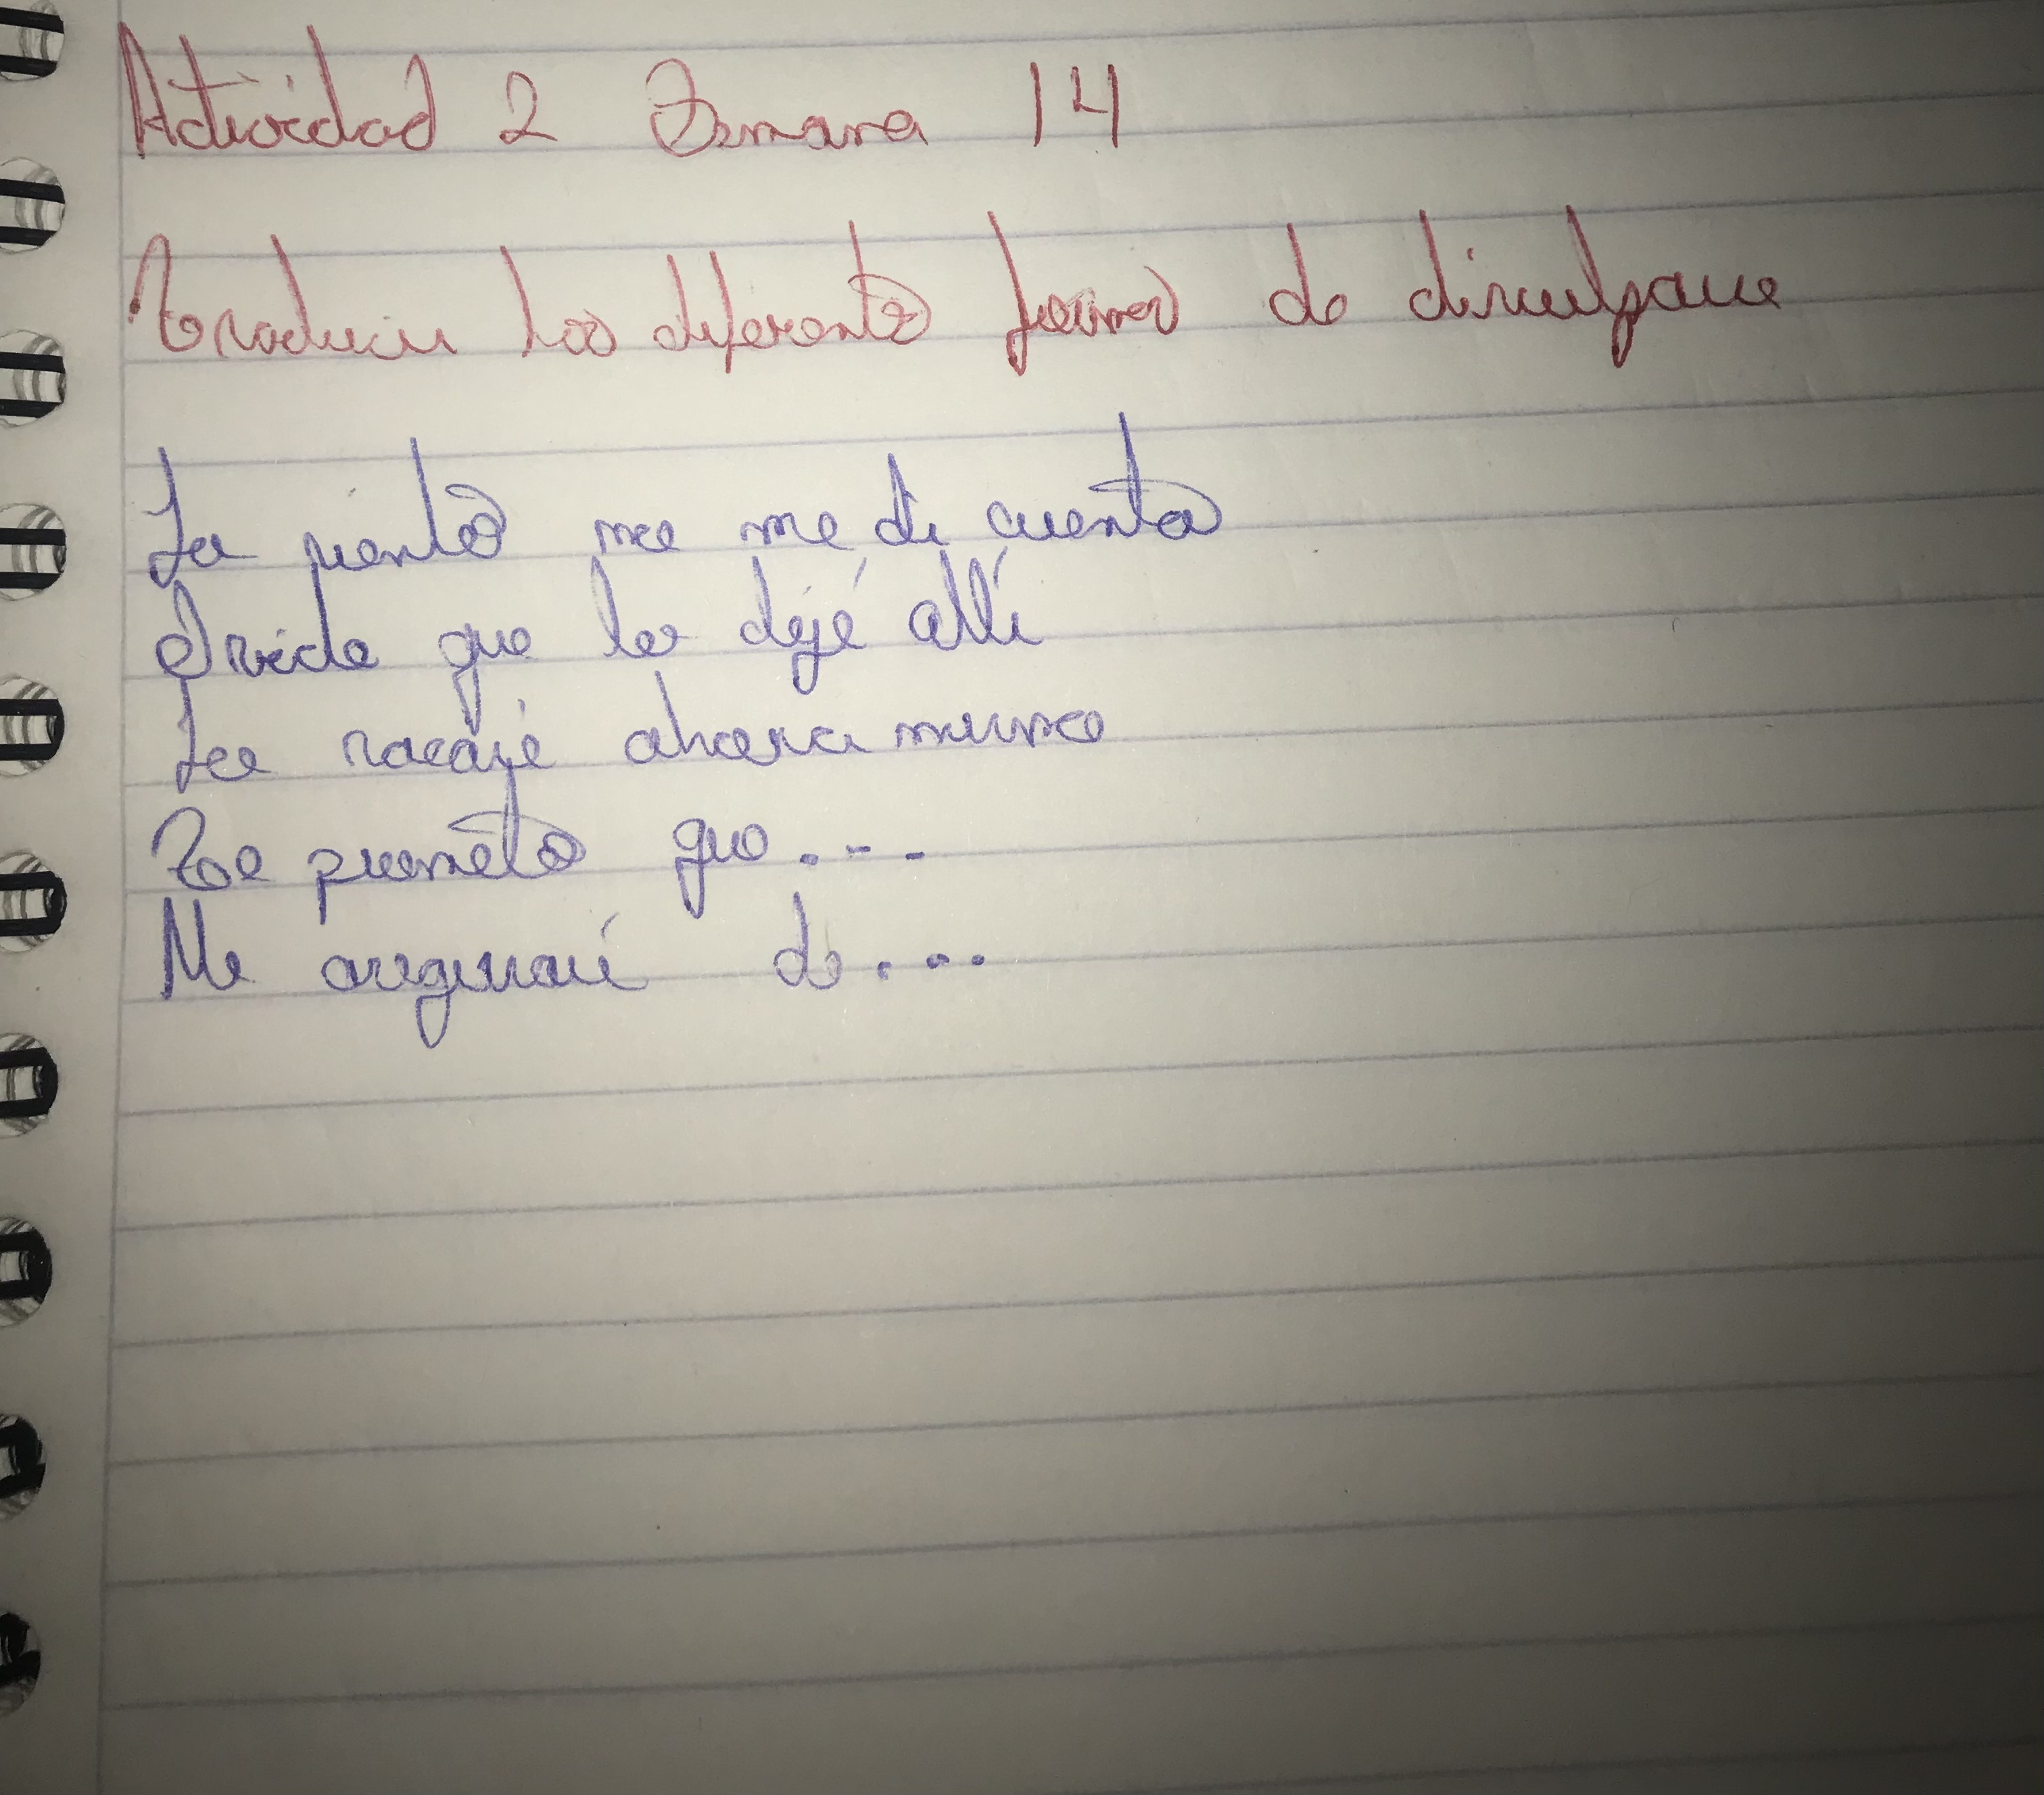 Actividad 2 Semana 14
Traducir las diferentes formas de disculparse
Lo siento no me di cuenta
Olvide que lo dejé allí
Lo sacaré ahora mismo
Te prometo que...
Me aseguraré de...